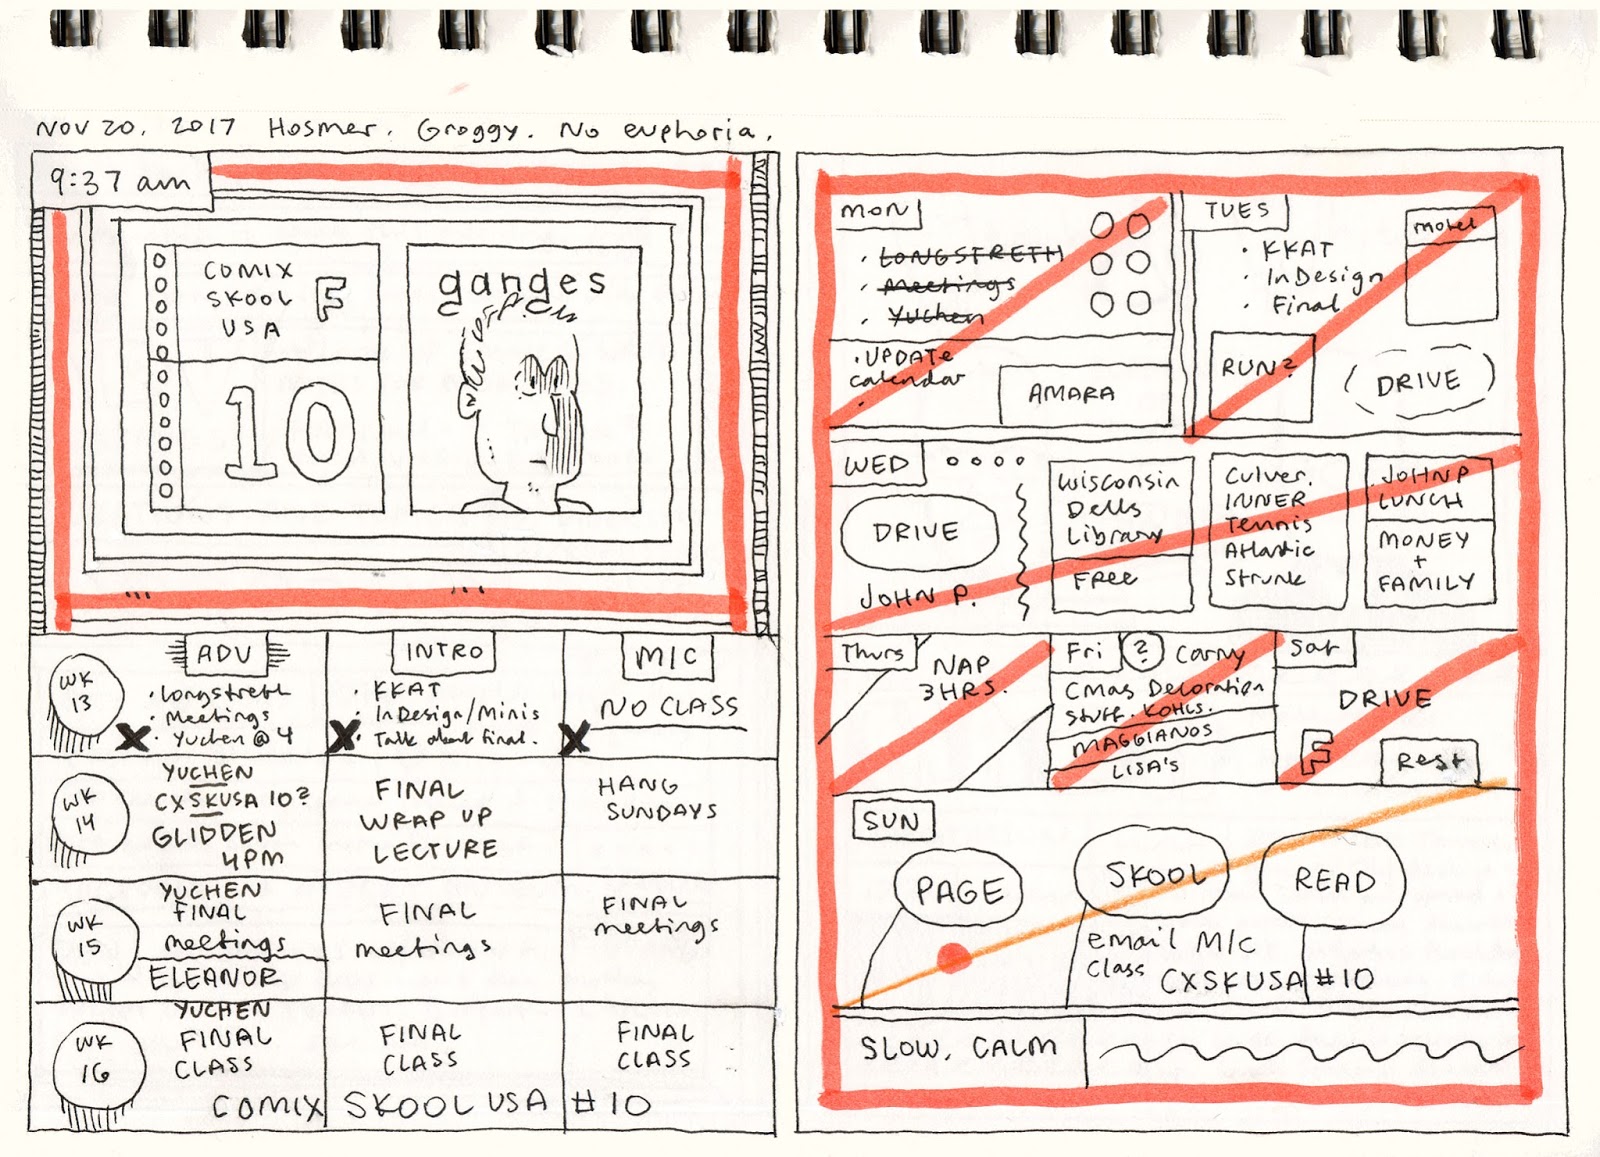 Nov 20, 2017 Hosmer. Groggy. No euphoria.
9:37 am
COMIX
SKOOL
USA
F
10
ganges
ADV
INTRO
M/C
WK
13
· Longstreth
· Meetings
· Yuchen @ 4
· KKAT
· InDesign/Minis
· Talk about final.
NO CLASS
X
X
X
WK
14
YUCHEN
CXSKUSA 10?
GLIDDEN
4PM
FINAL
WRAP UP
LECTURE
HANG
SUNDAYS
WK
15
YUCHEN
FINAL
meetings
ELEANOR
FINAL
meetings
FINAL
meetings
WK
16
YUCHEN
FINAL
CLASS
FINAL
CLASS
FINAL
CLASS
COMIX SKOOL USA #10
MON
· LONGSTRETH
· Meetings
· Yuchen
· UPDATE
calendar
AMARA
TUES
· KKAT
· InDesign
· Final
motel
RUN?
DRIVE
WED
DRIVE
JOHN P.
Wisconsin
Dells
Library
Free
Culver.
INNER
Tennis
Atlantic
Strunk
JOHN P
LUNCH
MONEY
+
FAMILY
Thurs
NAP
3 HRS.
Fri ? Carny
Cmas Decoration
Stuff. KOHLS.
MAGGIANOS
LISA'S
Sat
DRIVE
F
Rest
SUN
PAGE
SKOOL
READ
email M/C
Class
CXSKUSA #10
SLOW, CALM